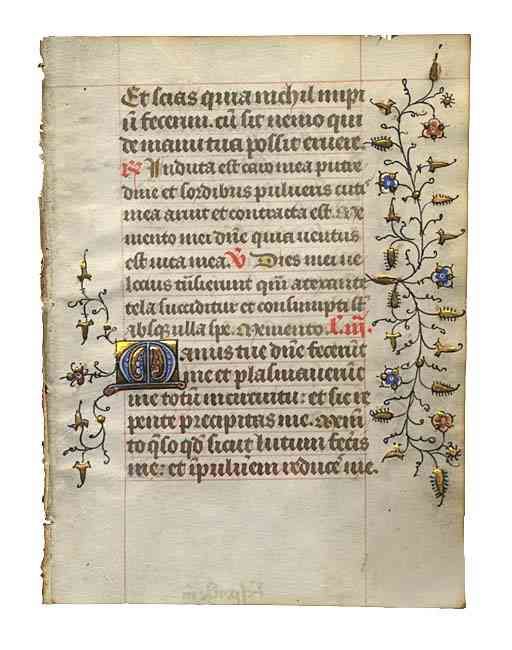 Et scias quia nichil impi
ū fecerim. cū sit nemo qui
de manu tua possit eruere.
R Induta est caro mea putre
dine et sordibus pulueris cutis
mea aruit et contracta est. Me
mento mei dn̄e quia uentus
est uita mea. V Dies mei ue
locius tn̄sierunt qm̄ a texente
tela succiditur et consumpti st̄
absq̄ ulla spe. Memento. L. iii.
Manus tue dn̄e fecerūt
me et plasmauerūt
me totū in circuitu: et sic re
pente precipitas me. Mem̄
to q̄so qd̄ sicut lutum feceris
me: et ī puluerem reduces me.